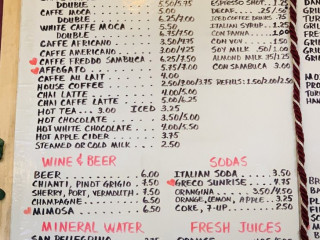 DOUBLE 5.50/5.75
CAFFE MOCA 5.00
DOUBLE 6.25/7.00
WHITE CAFFE MOCA 5.50
DOUBLE
CAFFE AFRICANO 3.50/4.75
CAFFE AMERICANO 3.00/4.25
CAFFE FREDDO SAMBUCA 6.25/7.50
AFFOGATO 5.75/7.00
CAFFE AU LAIT 4.00
HOUSE COFFEE 2.50/3.00/3.75 REFILLS: 1.50/2.00/2.50
CHAI LATTE 4.00
CHAI CAFFE LATTE 5.00/6.25
HOT TEA ... 3.00 ICED 3.25
HOT CHOCOLATE 3.50/4.50
HOT WHITE CHOCOLATE 4.00/5.00
HOT APPLE CIDER 3.75
STEAMED OR COLD MILK 2.50
ESPRESSO SHOT 1.25
DECAF .25/.50
ICED COFFEE DRINKS .75
ITALIAN SYRUP 1.25
CON PANNA 1.00
CON UOVO 1.50
SOY MILK .50/1.00
ALMOND MILK .75/1.25
CON SAMBUCA 3.00
WINE & BEER
BEER 6.00
CHIANTI, PINOT GRIGIO 7.50
SHERRY, PORT, VERMOUTH 7.50
CHAMPAGNE 6.50
MIMOSA 6.50
MINERAL WATER
SAN PELLEGRINO
SODAS
ITALIAN SODA 3.50
GRECO SUNRISE 4.75
ORANGINA 3.50/4.50
ORANGE, LEMON, APPLE 3.25
COKE, 7-UP 2.50
FRESH JUICES
ORANGE